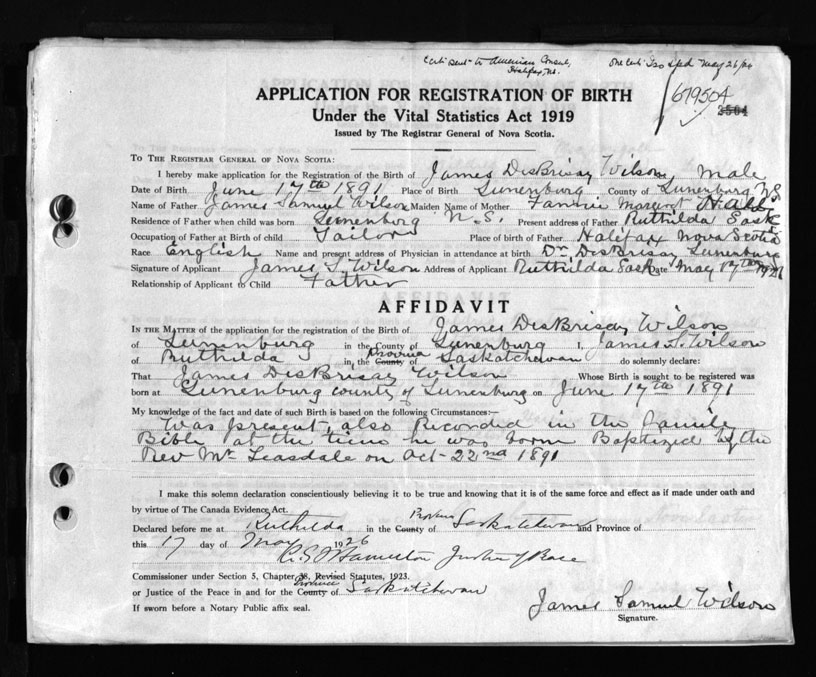 Certi sent to American Consul, Halifax, NS.
May 26/26
679504
3504
APPLICATION FOR REGISTRATION OF BIRTH
Under the Vital Statistics Act 1919
Issued by The Registrar General of Nova Scotia.
To The Registrar General of Nova Scotia:
I hereby make application for the Registration of Birth of James DesBrisay Wilson, Male
Date of Birth June 17th 1891 Place of Birth Lunenburg County of Lunenburg N.S.
Name of Father James Samuel Wilson Maiden Name of Mother Fannie Margaret
Residence of Father when child was born Lunenburg N.S. Present address of Father Ruthilda Sask
Occupation of Father at Birth of child Tailor Place of birth of Father Halifax Nova Scotia
Race English Name and present address of Physician in attendance at birth Dr. DesBrisay Lunenburg
Signature of Applicant James S. Wilson Address of Applicant Ruthilda Sask Date May 17th 1926
Relationship of Applicant to Child Father
AFFIDAVIT
In the Matter of the application for the registration of the Birth of James DesBrisay Wilson
of Lunenburg in the County of Lunenburg I, James S. Wilson
of Ruthilda in the County Province of Saskatchewan do solemnly declare:
That James DesBrisay Wilson Whose Birth is sought to be registered was
born at Lunenburg county of Lunenburg on June 17th 1891
My knowledge of the fact and date of such Birth is based on the following Circumstances:—
Was present, also Recorded in the Family
Bible at the time he was born Baptized by the
Rev Mr Teasdale on Oct 22nd 1891
I make this solemn declaration conscientiously believing it to be true and knowing that it is of the same force and effect as if made under oath and
by virtue of The Canada Evidence Act.
Declared before me at Ruthilda in the County Province of Saskatchewan and Province of
this 17 day of May 1926
Hamilton Justice of Peace
Commissioner under Section 5, Chapter 38, Revised Statutes, 1923.
or Justice of the Peace in and for the County Province of Saskatchewan
If sworn before a Notary Public affix seal.
James Samuel Wilson
Signature.